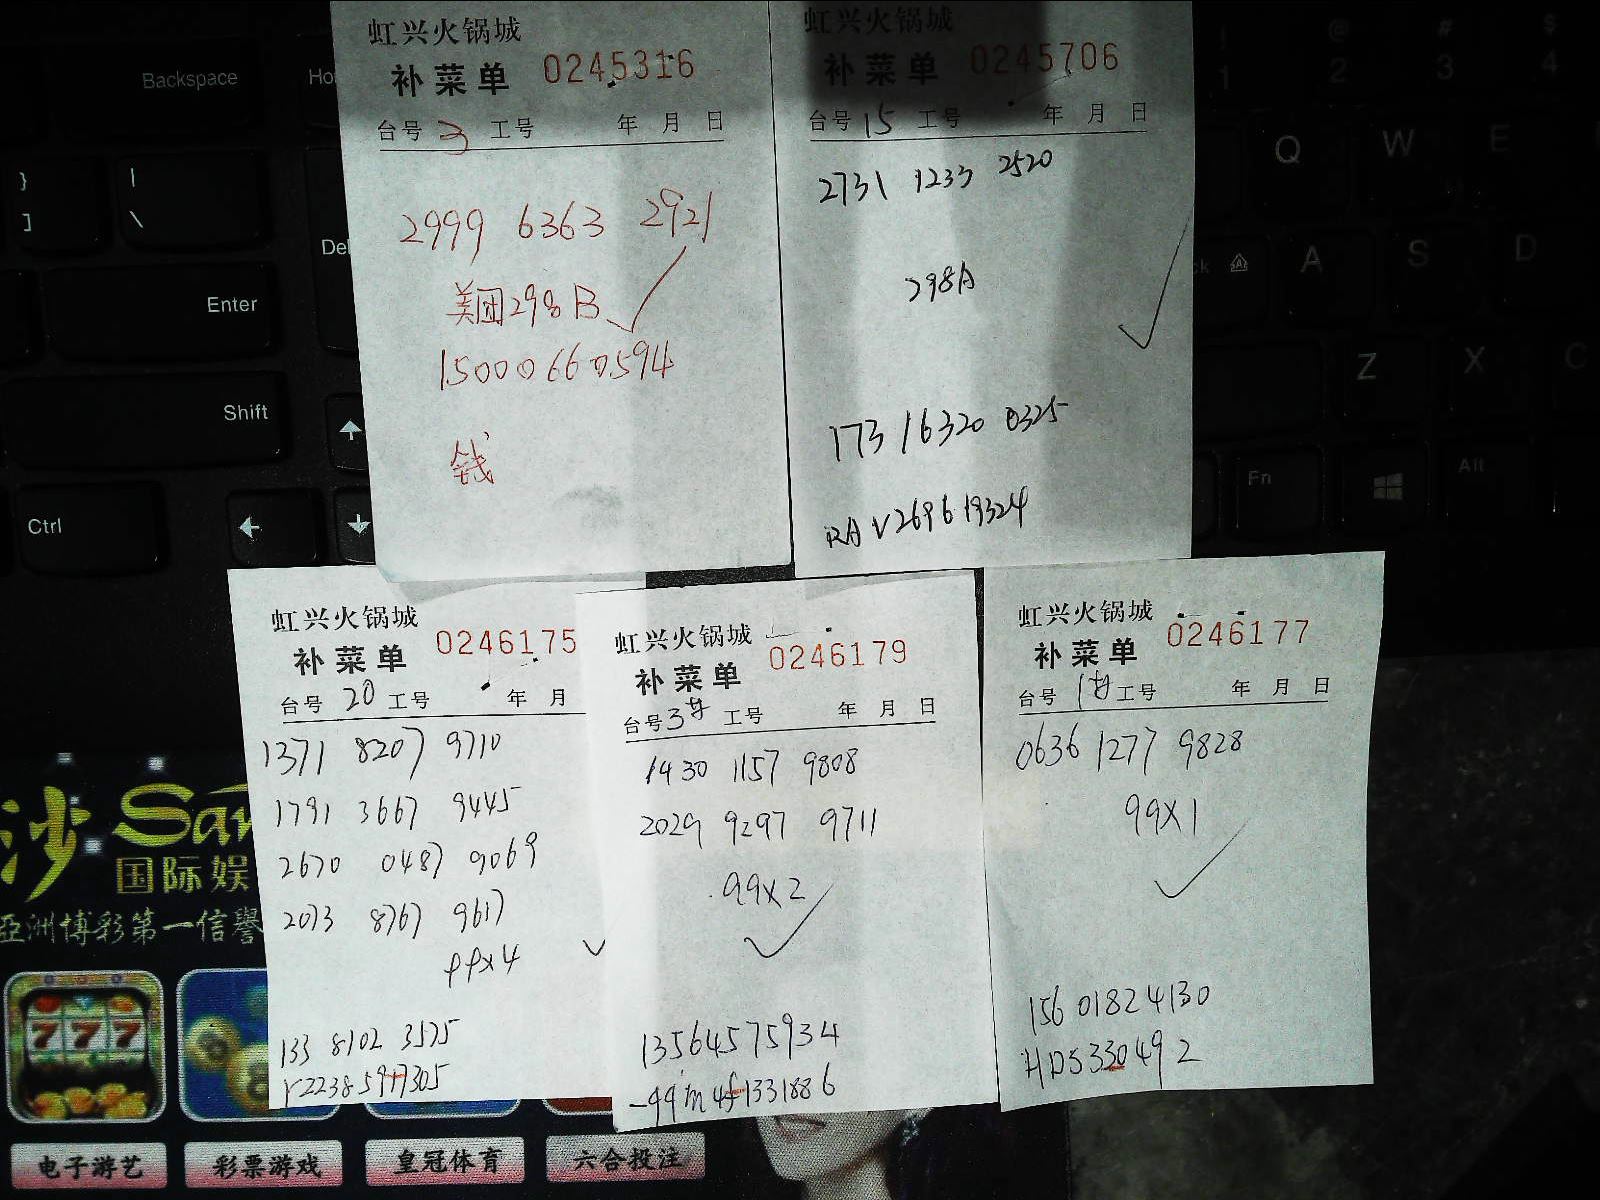 虹兴火锅城
补菜单 0245316
台号 3 工号 年 月 日
2999 6363 2921
美团298B
15000660594
钱
虹兴火锅城
补菜单 0245706
台号 15 工号 年 月 日
2731 1233 2520
298A
173 16320 0325
RAV269619324
虹兴火锅城
补菜单 0246175
台号 20 工号 年 月
1371 8207 9710
1791 3667 9445
2670 0487 9069
2073 8767 9617
99x4
133 8102 3575
虹兴火锅城
补菜单 0246179
台号 3 工号 年 月 日
1430 1157 9808
2029 9297 9711
99x2
13564575934
虹兴火锅城
补菜单 0246177
台号 1 工号 年 月 日
0636 1277 9828
99x1
156 01824130
HDS330492
Backspace
}
]
|
\
Enter
Shift
Ctrl
Del
!
1
@
2
#
3
$
4
Q
W
E
A
S
D
Z
X
C
Fn
Alt
沙
国际娱
亞洲博彩第一信譽
777
电子游艺
彩票游戏
皇冠体育
六合投注